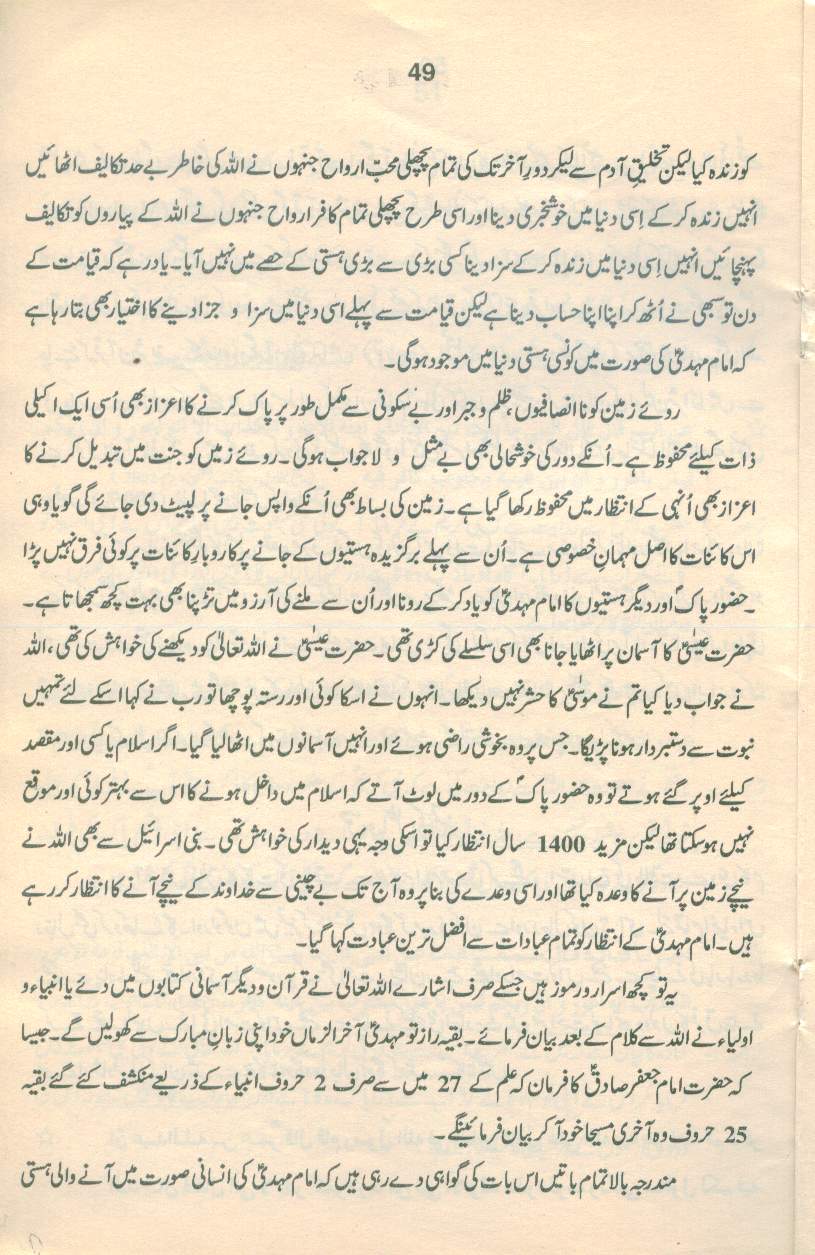 49
کو زندہ کیا لیکن تخلیقِ آدم سے لیکر دورِ آخر تک کی تمام پچھلی محبّ ارواح جنہوں نے اللہ کی خاطر بے حد تکالیف اٹھائیں
انہیں زندہ کر کے اِسی دنیا میں خوشخبری دینا اور اسی طرح پچھلی تمام کافر ارواح جنہوں نے اللہ کے پیاروں کو تکالیف
پہنچائیں انہیں اِسی دنیا میں زندہ کر کے سزا دینا کسی بڑی سے بڑی ہستی کے حصے میں نہیں آیا۔ یاد رہے کہ قیامت کے
دن تو سبھی نے اُٹھ کر اپنا اپنا حساب دینا ہے لیکن قیامت سے پہلے اسی دنیا میں سزا و جزا دینے کا اختیار بھی بتا رہا ہے
کہ امام مہدیؑ کی صورت میں کونسی ہستی دنیا میں موجود ہوگی۔
روئے زمین کو ناانصافیوں، ظلم و جبر اور بے سکونی سے مکمل طور پر پاک کرنے کا اعزاز بھی اُسی ایک اکیلی
ذات کیلئے محفوظ ہے۔ اُنکے دور کی خوشحالی بھی بے مثل و لاجواب ہوگی۔ روئے زمیں کو جنت میں تبدیل کرنے کا
اعزاز بھی اُنہی کے انتظار میں محفوظ رکھا گیا ہے۔ زمین کی بساط بھی اُنکے واپس جانے پر لپیٹ دی جائے گی گویا وہی
اس کائنات کا اصل مہمانِ خصوصی ہے۔ اُن سے پہلے برگزیدہ ہستیوں کے جانے پر کاروبارِ کائنات پر کوئی فرق نہیں پڑا
۔ حضور پاکؐ اور دیگر ہستیوں کا امام مہدیؑ کو یاد کر کے رونا اور اُن سے ملنے کی آرزو میں تڑپنا بھی بہت کچھ سمجھاتا ہے۔
حضرت عیسٰیؑ کا آسمان پر اٹھایا جانا بھی اسی سلسلے کی کڑی تھی۔ حضرت عیسٰیؑ نے اللہ تعالیٰ کو دیکھنے کی خواہش کی تھی، اللہ
نے جواب دیا کیا تم نے موسٰیؑ کا حشر نہیں دیکھا۔ انہوں نے اسکا کوئی اور رستہ پوچھا تو رب نے کہا اسکے لئے تمہیں
نبوت سے دستبردار ہونا پڑیگا۔ جس پر وہ بخوشی راضی ہوئے اور انہیں آسمانوں میں اٹھا لیا گیا۔ اگر اسلام یا کسی اور مقصد
کیلئے اوپر گئے ہوتے تو وہ حضور پاکؐ کے دور میں لوٹ آتے کہ اسلام میں داخل ہونے کا اس سے بہتر کوئی اور موقع
نہیں ہو سکتا تھا لیکن مزید 1400 سال انتظار کیا تو اسکی وجہ یہی دیدار کی خواہش تھی۔ بنی اسرائیل سے بھی اللہ نے
نیچے زمین پر آنے کا وعدہ کیا تھا اور اسی وعدے کی بنا پر وہ آج تک بے چینی سے خداوند کے نیچے آنے کا انتظار کر رہے
ہیں۔ امام مہدیؑ کے انتظار کو تمام عبادات سے افضل ترین عبادت کہا گیا۔
یہ تو کچھ اسرار و رموز ہیں جسکے صرف اشارے اللہ تعالیٰ نے قرآن و دیگر آسمانی کتابوں میں دئے یا انبیاء و
اولیاء نے اللہ سے کلام کے بعد بیان فرمائے۔ بقیہ راز تو مہدیؑ آخر الزماں خود اپنی زبانِ مبارک سے کھولیں گے۔ جیسا
کہ حضرت امام جعفر صادقؑ کا فرمان کہ علم کے 27 میں سے صرف 2 حروف انبیاء کے ذریعے منکشف کئے گئے بقیہ
25 حروف وہ آخری مسیحا خود آ کر بیان فرمائینگے۔
مندرجہ بالا تمام باتیں اس بات کی گواہی دے رہی ہیں کہ امام مہدیؑ کی انسانی صورت میں آنے والی ہستی